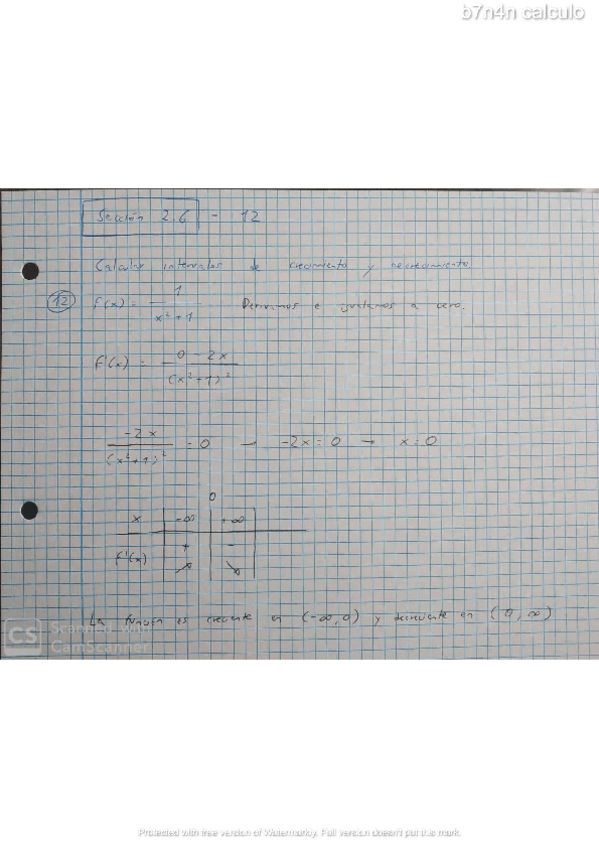 b7n4n calculo
Sección 2.6 - 12
Calcular intervalos de crecimiento y decrecimiento
12 f(x) = 1 / x² + 1 Derivamos e igualamos a cero.
f'(x) = 0 - 2x / (x² + 1)²
-2x / (x² + 1)² = 0 → -2x = 0 → x = 0
0
x | -∞ | +∞ |
f'(x) | + | - |
↗ ↘
La función es creciente en (-∞, 0) y decreciente en (0, ∞)
CS Scanned with
CamScanner
Protected with free version of Watermarkly. Full version doesn't put this mark.